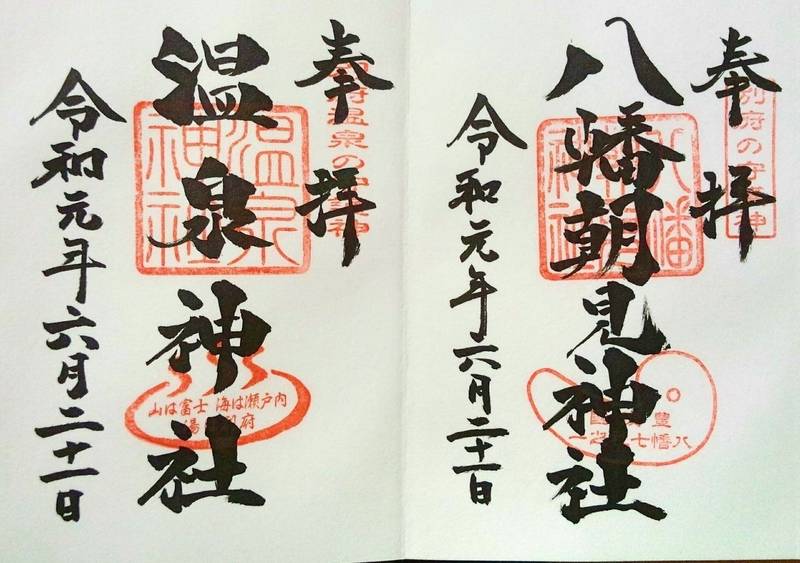 奉拝
別府の守護神
八幡朝見神社
令和元年六月二十一日
奉拝
別府温泉の守護神
温泉神社
温泉神社
山は富士 海は瀬戸内
湯は別府
令和元年六月二十一日